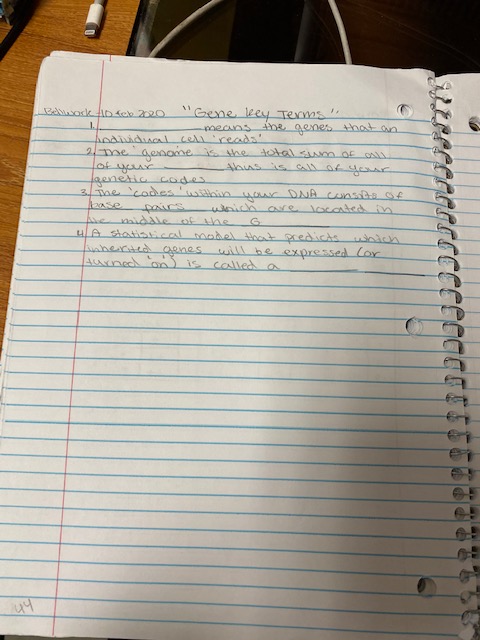 Bellwork 10 Feb 2020 "Gene Key Terms"
1. ________ means the genes that an
individual cell 'reads'
2. The 'genome' is the total sum of all
of your ________ thus is all of your
genetic codes
3. The 'codes' within your DNA consists of
base pairs which are located in
the middle of the G________
4. A statistical model that predicts which
inherited genes will be expressed (or
turned 'on') is called a ________ ________
44